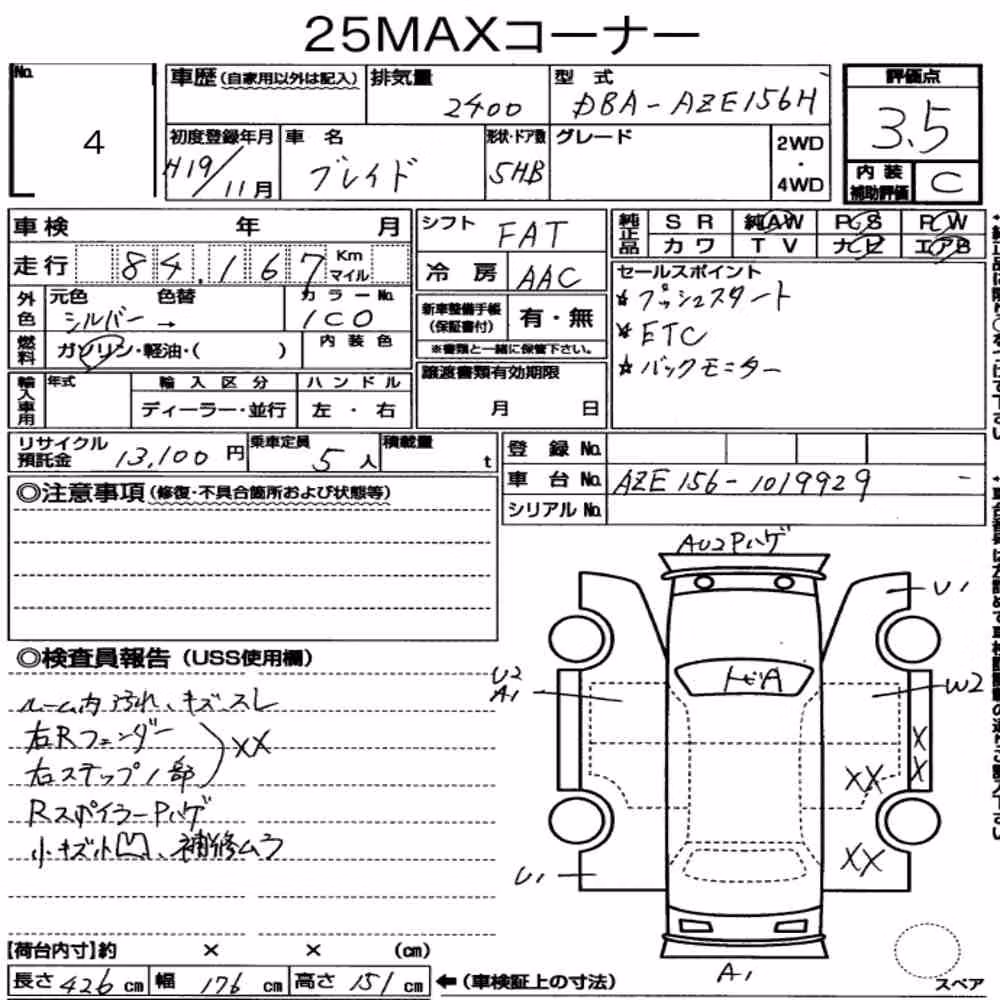 25MAXコーナー
No.
4
車歴 (自家用以外は記入)
排気量
2400
型式
DBA-AZE156H
評価点
3.5
初度登録年月
H19/11月
車名
ブレイド
形状・ドア数
5HB
グレード
2WD
・
4WD
内装
補助評価
C
車検 年 月
走行 84,167 Km
マイル
シフト
FAT
冷房
AAC
純正品
SR 純AW PS PW
カワ TV ナビ エアB
セールスポイント
☆プッシュスタート
☆ETC
☆バックモニター
外色
元色 色替
シルバー→
カラーNo.
1C0
燃料
ガソリン・軽油・( )
内装色
新車整備手帳
(保証書付)
有・無
※書類と一緒に保管下さい。
輸入車用
年式
輸入区分
ディーラー・並行
ハンドル
左・右
譲渡書類有効期限
月 日
リサイクル
預託金 13,100円
乗車定員
5人
積載量
t
登録No.
車台No. AZE156-1019929 -
シリアルNo.
◎注意事項 (修復・不具合箇所および状態等)
◎検査員報告 (USS使用欄)
ルーム内汚れ、キズ、スレ
右Rフェンダー
右ステップ1部
XX
RスポイラーPハゲ
小キズ小凹、補修ムラ
AU2Pハゲ
U1
U2
A1
トビA
W2
X
X
XX
XX
U1
A1
スペア
[荷台内寸]約 × × (cm)
長さ 426 cm 幅 176 cm 高さ 151 cm ←(車検証上の寸法)